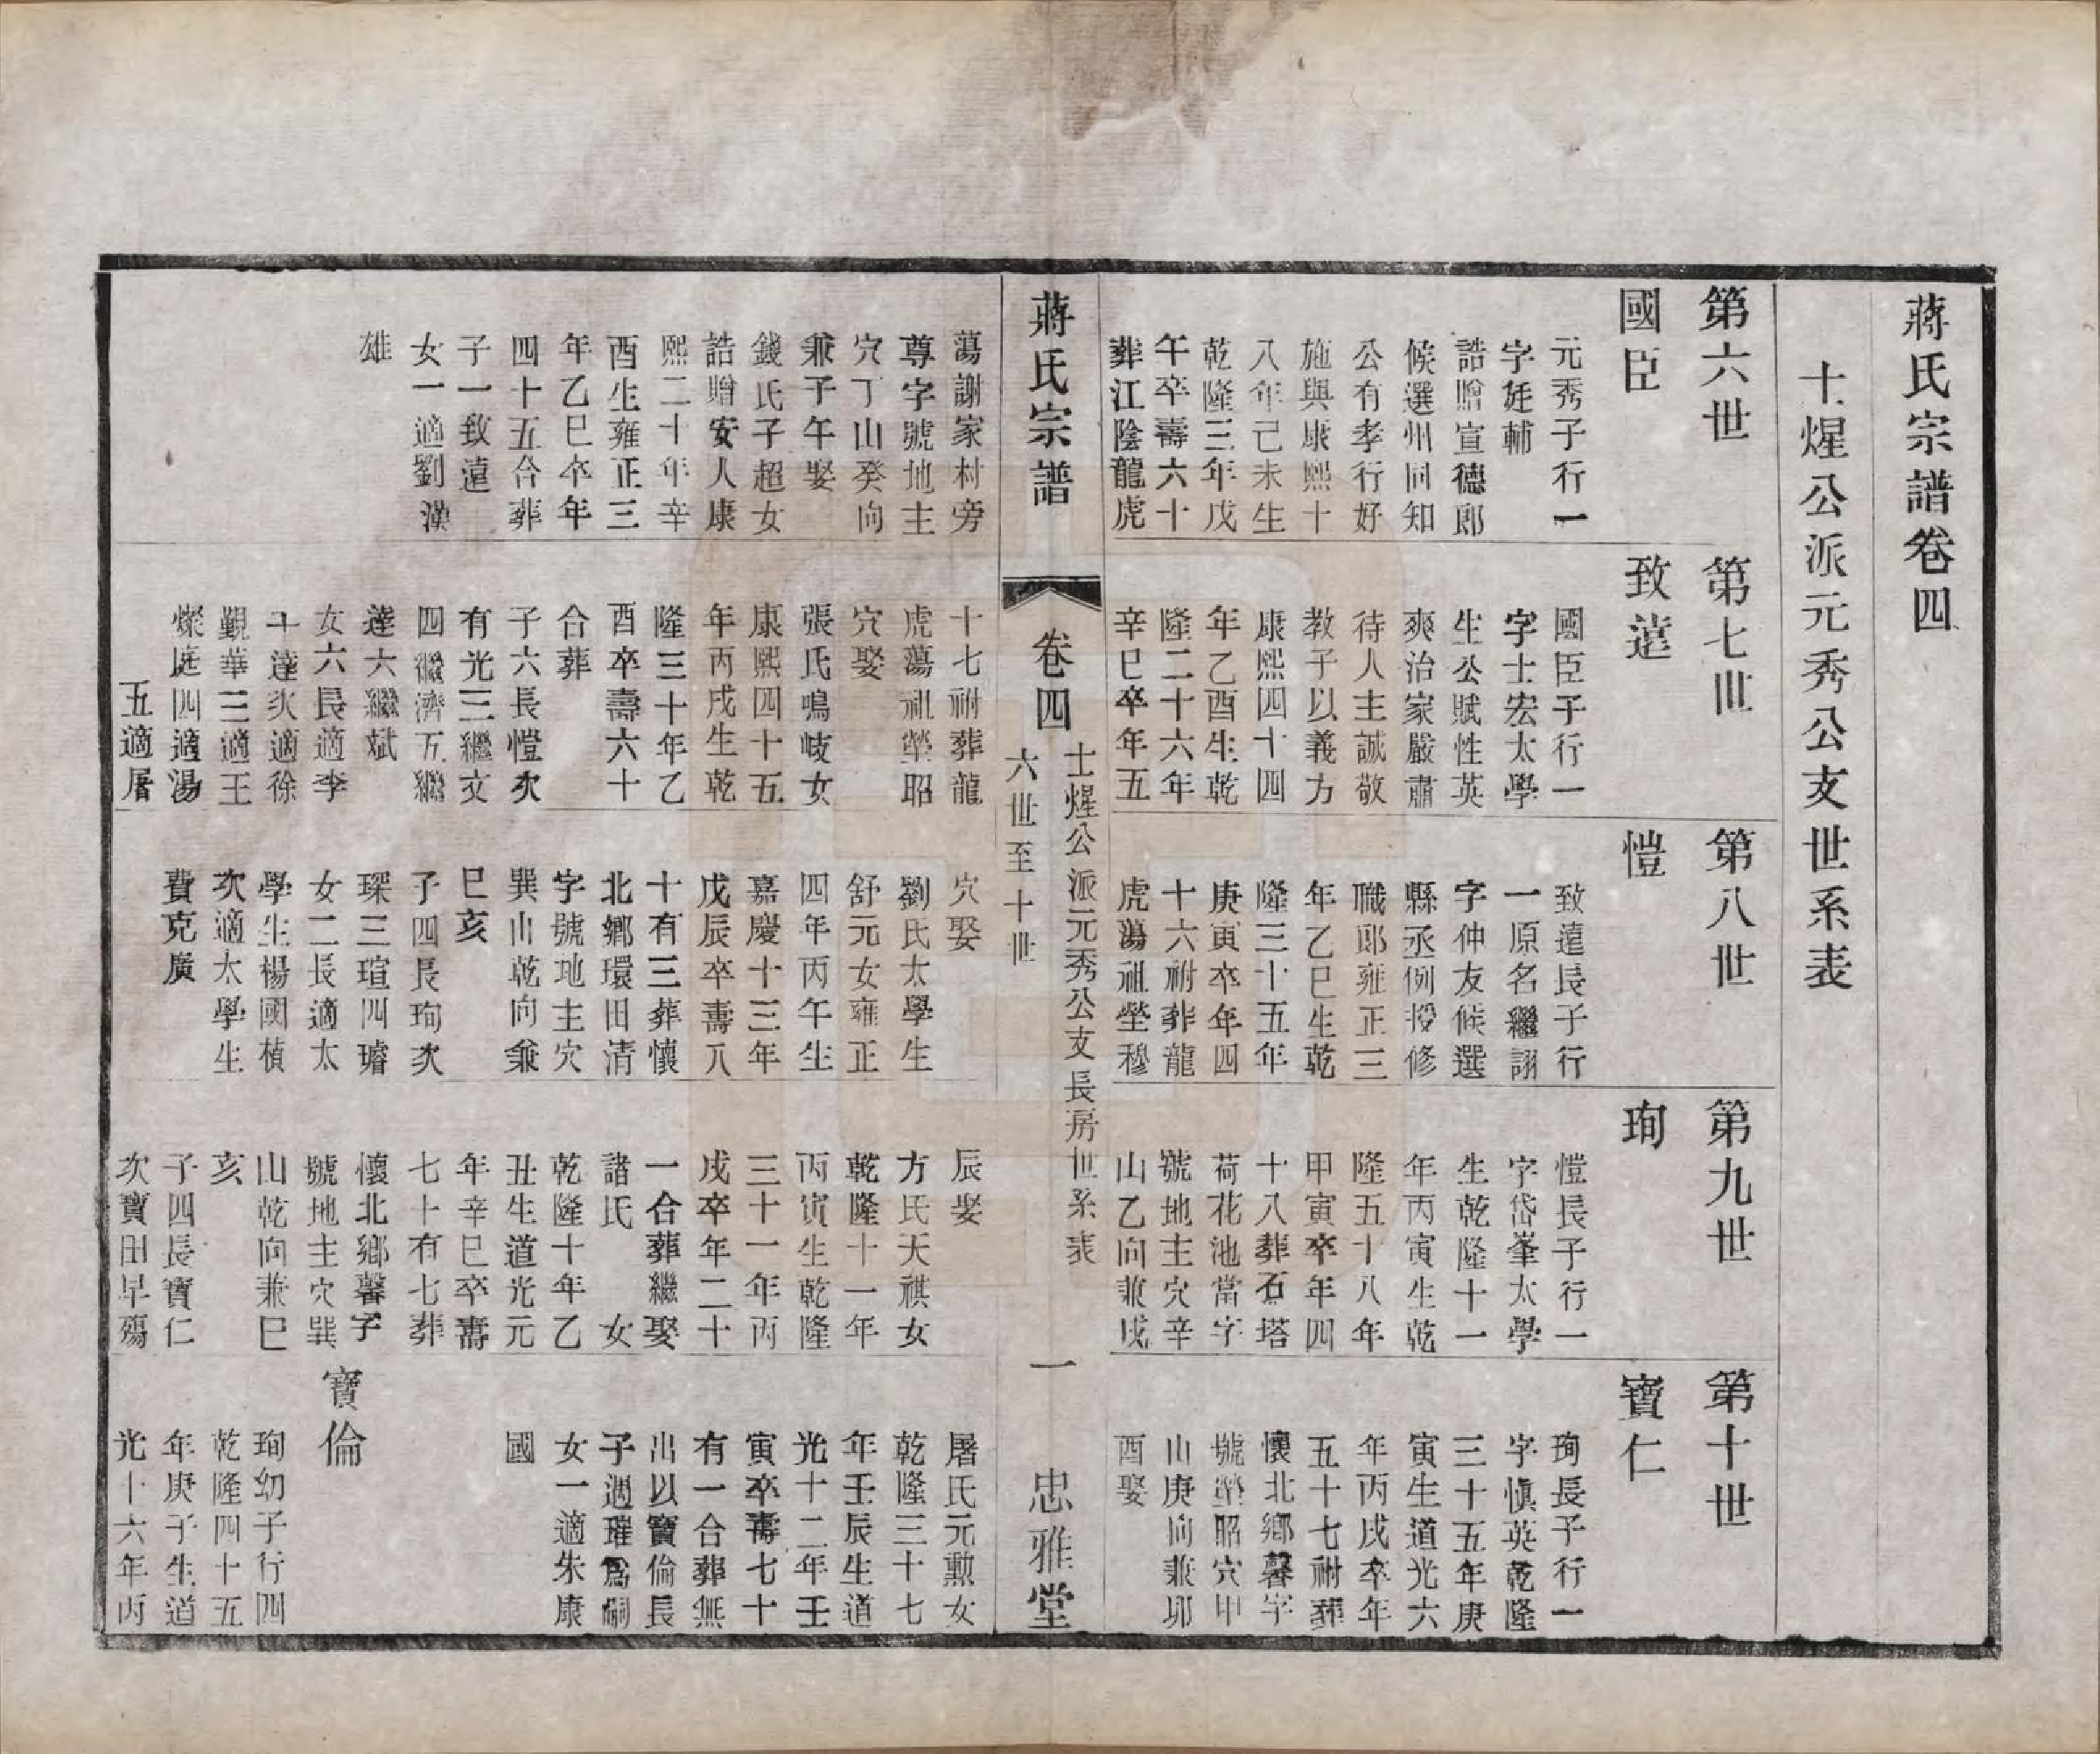 蔣氏宗譜卷四
士煋公派元秀公支世系表
第六世
國臣
元秀子行一
字廷輔
誥贈宣德郎
候選州同知
公有孝行好
施與康熙十
八年己未生
乾隆三年戊
午卒壽六十
葬江陰龍虎
第七世
致遠
國臣子行一
字士宏太學
生公賦性英
爽治家嚴肅
待人主誠敬
教子以義方
康熙四十四
年乙酉生乾
隆二十六年
辛巳卒年五
第八世
愷
致遠長子行
一原名繼詡
字仲友候選
縣丞例授修
職郎雍正三
年乙巳生乾
隆三十五年
庚寅卒年四
十六祔葬龍
虎蕩祖塋穆
第九世
珣
愷長子行一
字岱峯太學
生乾隆十一
年丙寅生乾
隆五十八年
甲寅卒年四
十八葬石塔
荷花池當字
號地主穴辛
山乙向兼戌
第十世
寶仁
珣長子行一
字愼英乾隆
三十五年庚
寅生道光六
年丙戌卒年
五十七祔葬
懷北鄉馨字
號塋昭穴甲
山庚向兼卯
酉娶
蔣氏宗譜
卷四
士煋公派元秀公支長房世系表
六世至十世
一
忠雅堂
蕩謝家村旁
尊字號地主
穴丁山癸向
兼子午娶
錢氏子超女
誥贈安人康
熙二十年辛
酉生雍正三
年乙巳卒年
四十五合葬
子一致遠
女一適劉漢
雄
十七祔葬龍
虎蕩祖塋昭
穴娶
張氏鳴岐女
康熙四十五
年丙戌生乾
隆三十年乙
酉卒壽六十
合葬
子六長愷次
有光三繼文
四繼濟五繼
達六繼斌
女六長適李
十達次適徐
觀華三適王
燦庭四適湯
五適屠
穴娶
劉氏太學生
舒元女雍正
四年丙午生
嘉慶十三年
戊辰卒壽八
十有三葬懷
北鄉環田清
字號地主穴
巽山乾向兼
巳亥
子四長珣次
琛三瑄四璿
女二長適太
學生楊國楨
次適太學生
費克廣
辰娶
方氏天祺女
乾隆十一年
丙寅生乾隆
三十一年丙
戌卒年二十
一合葬繼娶
諸氏　　女
乾隆十年乙
丑生道光元
年辛巳卒壽
七十有七葬
懷北鄉馨字
號地主穴巽
山乾向兼巳
亥
子四長寶仁
次寶田早殤
屠氏元勳女
乾隆三十七
年壬辰生道
光十二年壬
寅卒壽七十
有一合葬無
出以寶倫長
子週璀爲嗣
女一適朱康
國
寶倫
珣幼子行四
乾隆四十五
年庚子生道
光十六年丙